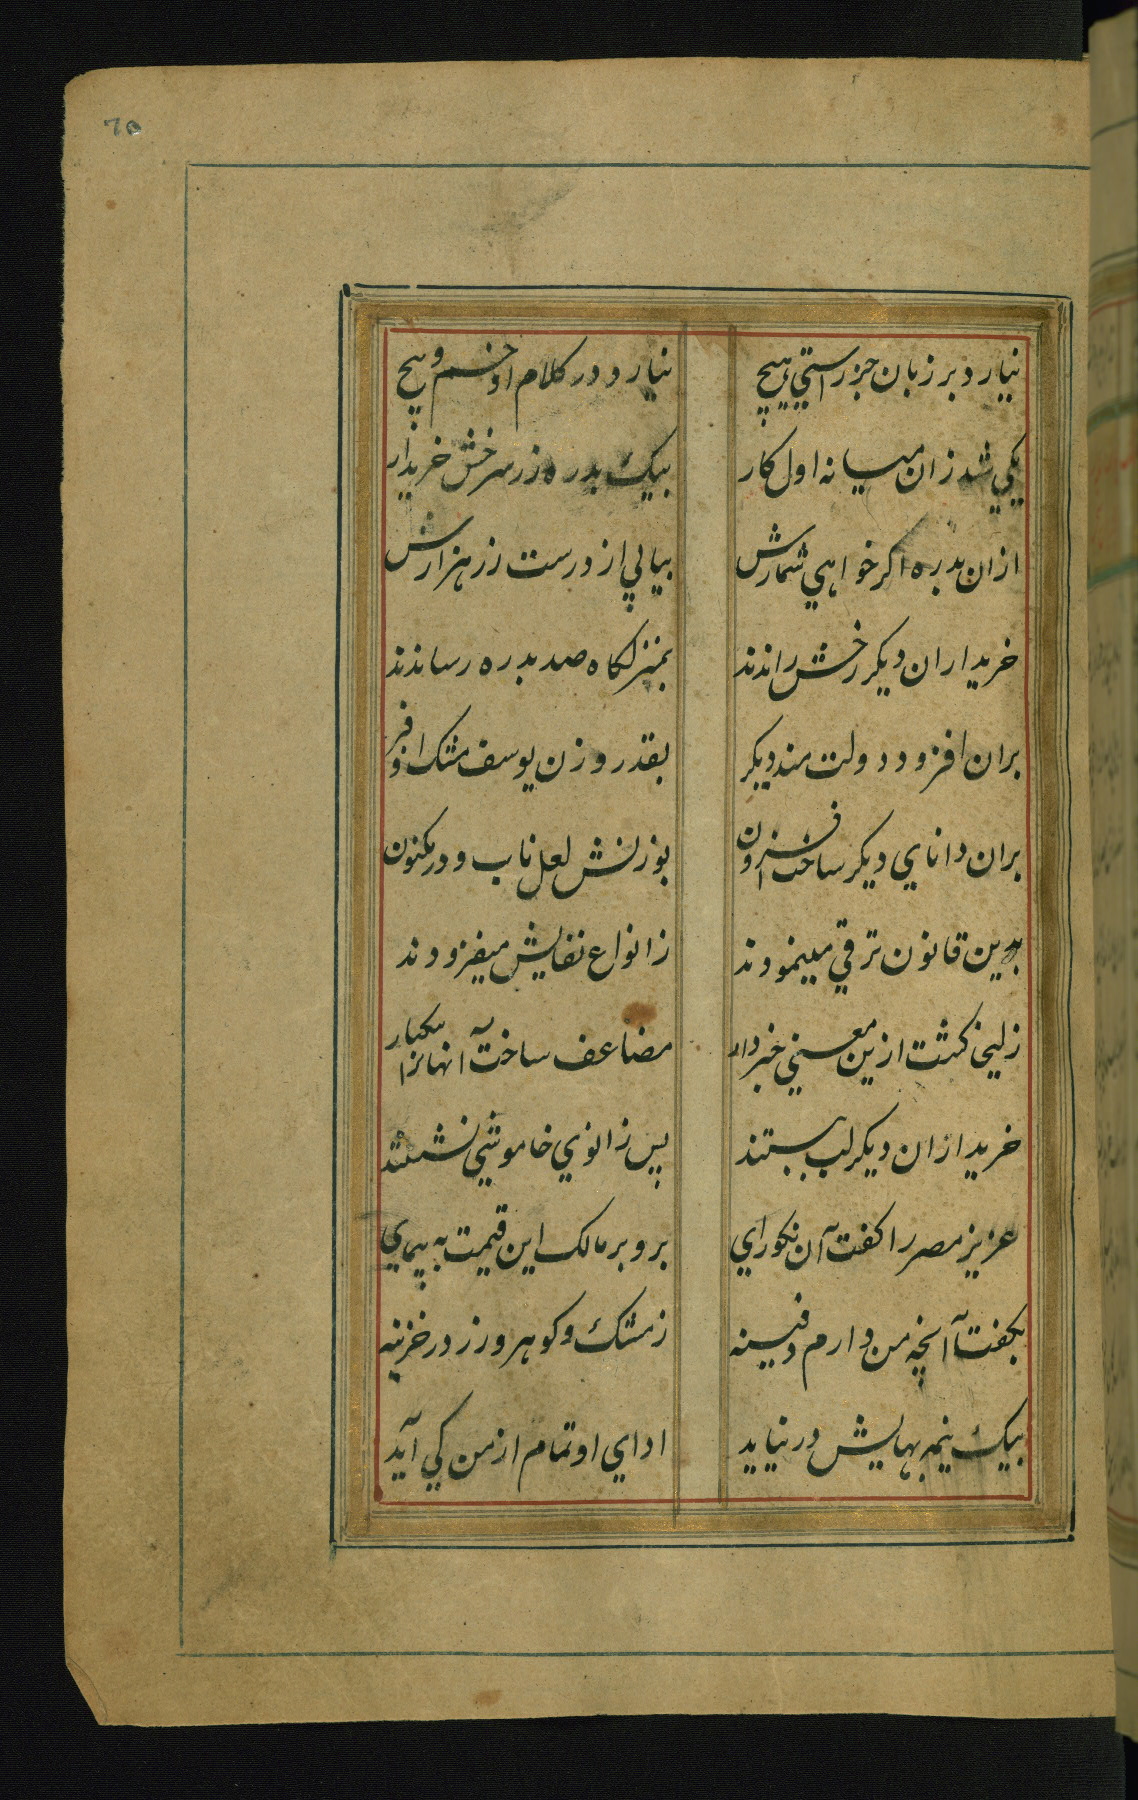 70
نیارد بر زبان جز راستی هیچ
نیارد در کلام او خم و پیچ
یکی شد زان میانه اول کار
بیک بدره زر سرخش خریدار
ازان بدره اکر خواهی شمارش
بیابی از درست زر هزارش
خریداران دیکر رخش راندند
بمنزلکاه صد بدره رساندند
بران افزود دولت مند دیکر
بقدر وزن یوسف مشک اذفر
بران دانای دیکر ساخت افزون
بوزنش لعل ناب و در مکنون
بدین قانون ترقی مینمودند
ز انواع نفایس میفزودند
زلیخا کشت ازین معنی خبردار
مضاعف ساخت آنها را بیکبار
خریداران دیکر لب ببستند
پس زانوی خاموشی نشستند
عزیز مصر را کفت آن نکورای
برو بر مالک این قیمت به پیمای
بکفتا آنچه من دارم دفینه
ز مشک و کوهر و زر در خزینه
بیک نیمه بهایش در نیاید
ادای او تمام از من کی آید